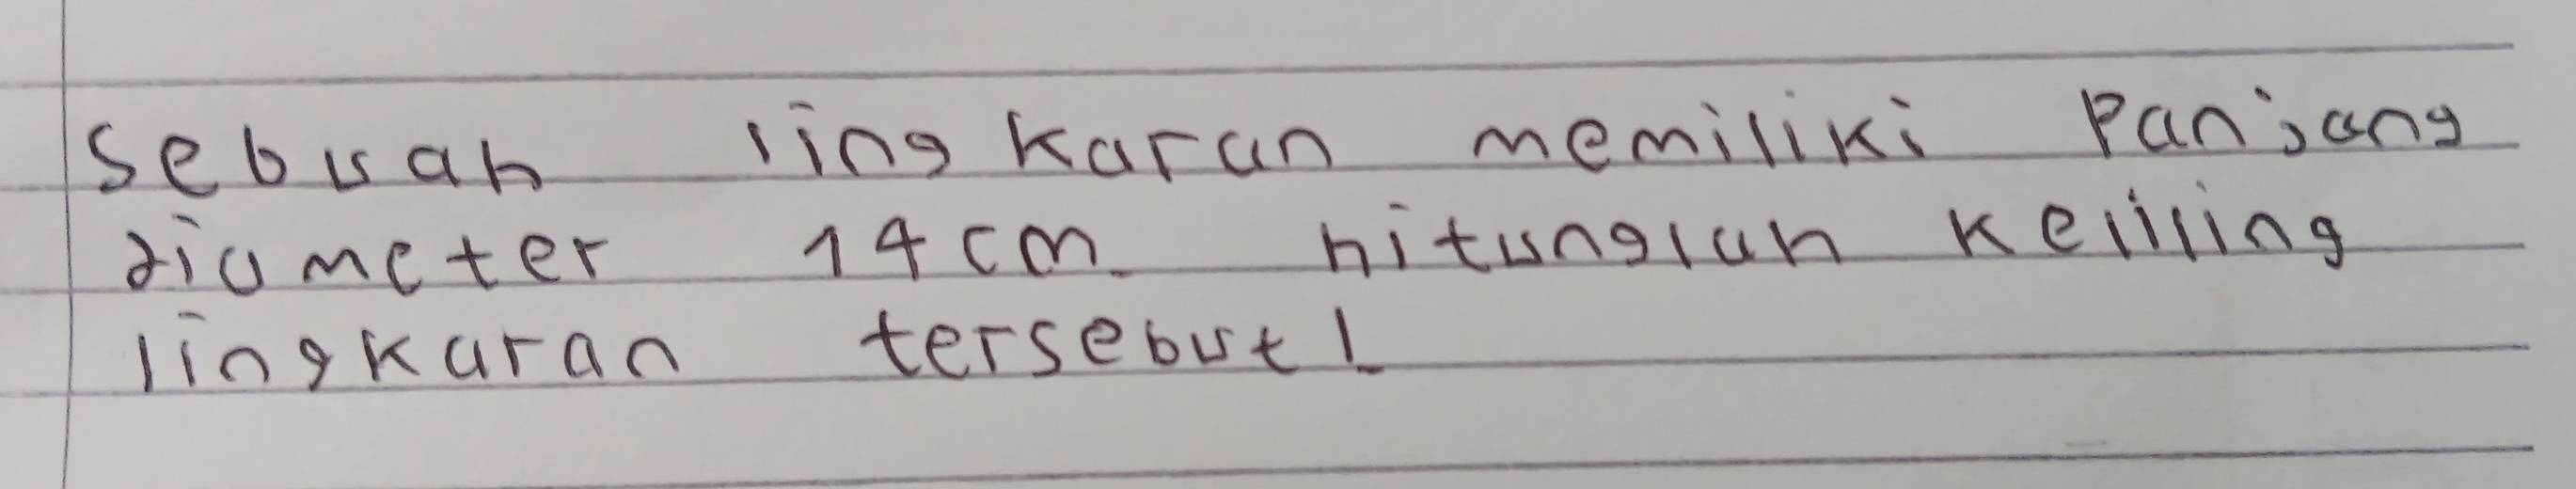 Sebuah lingkaran memiliki Panjang
diameter 14 cm. hitunglah keliling
lingkaran tersebut!